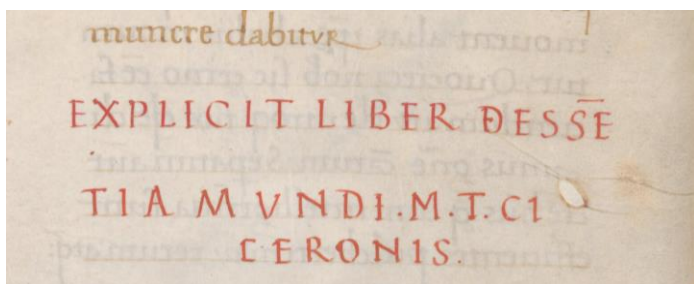 munere dabitur
EXPLICIT LIBER DESS̅E
TIA MVNDI.M.T.CI
CERONIS.